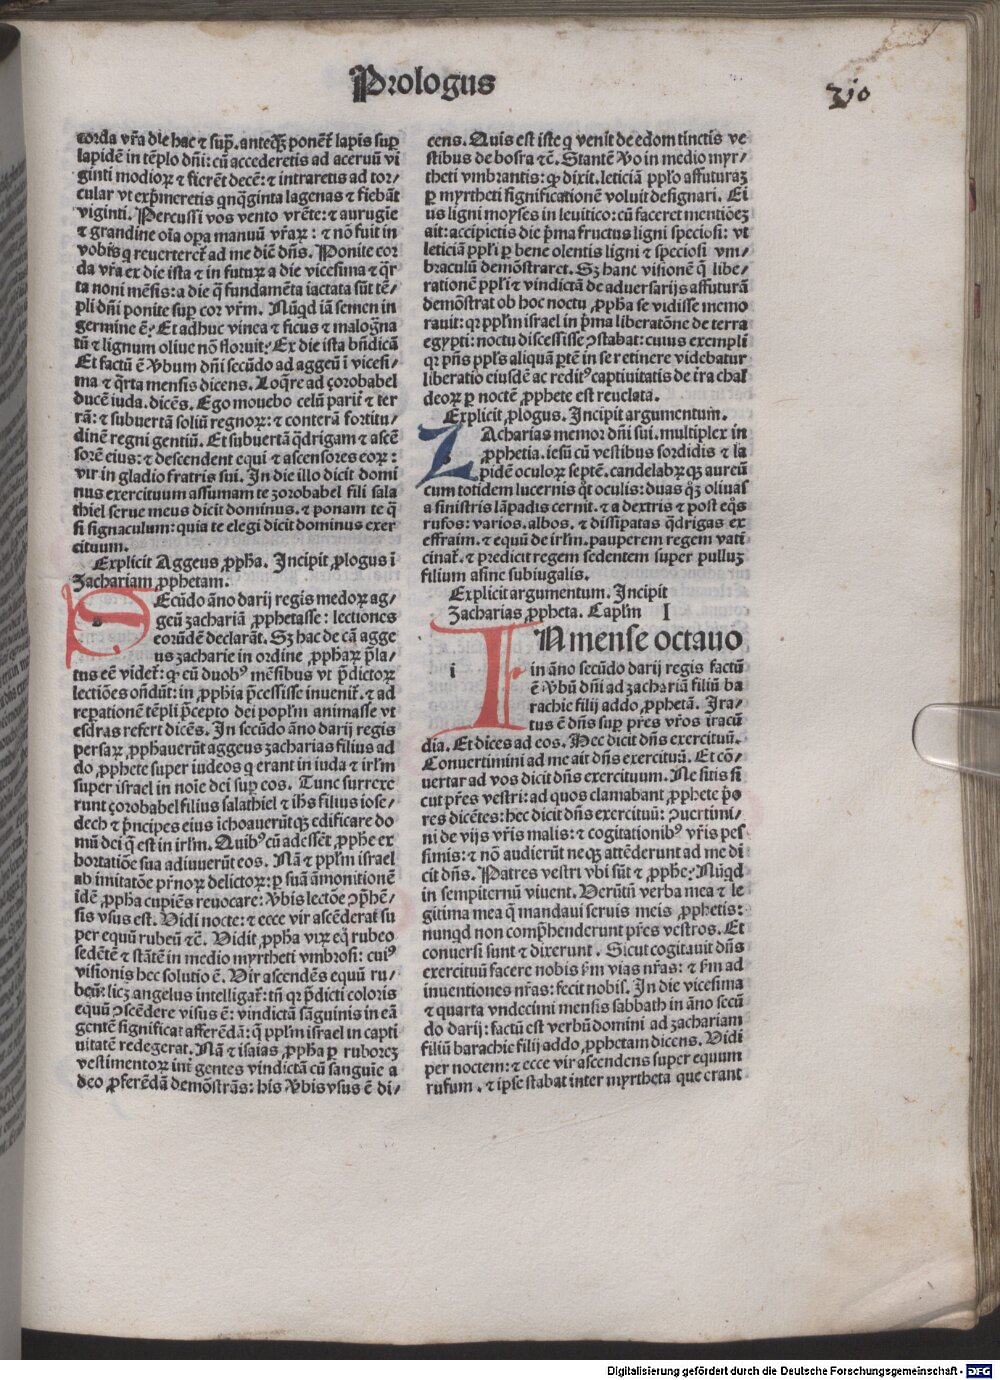 Prologus
310
corda vr̃a die hac ⁊ sup̃. anteq̃ȝ ponẽr̃ lapis sup̲
lapidẽ in tẽplo dñi: cũ accederetis ad aceruũ vi
ginti modioꝝ ⁊ fierẽt decẽ: ⁊ intraretis ad tor/
cular vt exp̃meretis qnq̃ginta lagenas ⁊ fiebãt
viginti. Percussi vos vento vrẽte: ⁊ aurugĩe
⁊ grandine oĩa opa manuũ vr̃aꝝ: ⁊ nõ fuit in
vobis q reuertereť ad me diẽ dñs. Ponite cor
da vr̃a ex die ista ⁊ in futuꝝ a die vicesima ⁊ q̃r
ta noni mẽsis: a die q̃ fundamẽta iactata sũt tẽ/
pli dñi ponite sup̲ cor vr̃m. Nũqd iã semen in
germine ẽ: Et adhuc vinea ⁊ ficus ⁊ malogña
tũ ⁊ lignum oliue nõ floruit: Ex die ista bñdicã
Et factũ ẽ ꝟbum dñi secũdo ad aggeũ ĩ vicesi/
ma ⁊ q̃rta mensis dicens. Loq̃re ad çorobabel
ducẽ iuda. dicẽs. Ego mouebo celũ pariť ⁊ ter
rã: ⁊ subuertã soliũ regnoꝝ: ⁊ conterã fortitu/
dinẽ regni gentiũ. Et subuertã q̃drigam ⁊ ascẽ
sorẽ eius: ⁊ descendent equi ⁊ ascensores eoꝝ:
vir in gladio fratris sui. In die illo dicit domi
nus exercituum assumam te zorobabel fili sala
thiel serue meus dicit dominus. ⁊ ponam te q̃
si signaculum: quia te elegi dicit dominus exer
cituum.
Explicit Aggeus ꝓpħa. Incipit ꝓlogus ĩ
Zachariam ꝓphetam.
SEcũdo ãno darij regis medoꝝ ag/
geũ zachariã ꝓphetasse: lectiones
eorũdẽ declarãt. Sȝ hac de cã agge
us zacharie in ordine ꝓphaꝝ p̃la/
tus eẽ videť: qꝛ cũ duobꝰ mẽsibus vt p̃dictoꝝ
lectiões oñdũt: in ꝓphia p̃cessisse inuenit̃. ⁊ ad
repationẽ tẽpli p̃cepto dei popl̃m animasse vt
esdras refert dicẽs. In secũdo ãno darij regis
persaꝝ ꝓphauerũt aggeus zacharias filius ad
do ꝓphete super iudeos q erant in iuda ⁊ irl̃m
super israel in noĩe dei sup̲ eos. Tunc surrexe
runt çorobabel filius salathiel ⁊ ihs filius iose/
dech ⁊ p̃ncipes eius ĩchoauerũtqȝ edificare do
mũ dei q̃ est in irl̃m. Quibꝰ cũ adessẽt ꝓphe ex
hortatiõe sua adiuuerũt eos. Nã ⁊ ppl̃m israel
ab imitatõe pr̃noꝝ delictoꝝ: p̲ suã ãmonitionẽ
idẽ ꝓpha cupiẽs reuocare: ꝟbis lectõe ꝯp̃hẽ/
sis vsus est. Vidi nocte: ⁊ ecce vir ascẽderat su
per equũ rubeũ ⁊c̃. Vidit ꝓpha viꝝ eq̃ rubeo
sedẽtẽ ⁊ stãtẽ in medio myrtheti vmbrosi: cuiꝰ
visionis hec solutio ẽ. Vir ascendẽs equũ ru/
beũ: licȝ angelus intelligať: tñ qꝛ p̃dicti coloris
equũ ꝯscẽdere visus ẽ: vindictã sãguinis in eã
gentẽ significat afferẽdã: q̃ ppl̃m israel in capti
uitatẽ redegerat. Nã ⁊ isaias ꝓpha p̲ ruborẽȝ
vestimentoꝝ inť gentes vindictã cũ sanguĩe a
deo ꝓferẽdã demõstrãs: his ꝟbis vsus ẽ di/
cens. Quis est iste q venit de edom tinctis ve
stibus de bosra ⁊c̃. Stantẽ ꝟo in medio myr/
theti vmbrantis: qꝛ dixit. leticiã ppl̃o affuturaȝ
p̲ myrtheti significationẽ voluit designari. Ei
us ligni moyses in leuitico: cũ faceret mentiõeȝ
ait: accipietis die p̃ma fructus ligni speciosi: vt
leticiã ppl̃i p̲ bene olentis ligni ⁊ speciosi vm/
braculũ demõstraret. Sȝ hanc visionẽ q̃ libe/
rationẽ ppl̃i ⁊ vindictã de aduersarijs affuturã
demõstrat ob hoc noctu ꝓpha se vidisse memo
rauit: qꝛ ppl̃m israel in p̃ma liberatõne de terra
egypti: noctu discessisse ꝯstabat: cuius exemplĩ
qꝛ pñs ppl̃s aliquã p̲tẽ in se retinere videbatur
liberatio eiusdẽ ac reditꝰ captiuitatis de t̃ra chal
deoꝝ p̲ noctẽ ꝓphete est reuelata.
Explicit ꝓlogus. Incipit argumentum.
ZAcharias memor dñi sui. multiplex in
ꝓphetia. iesũ cũ vestibus sordidis ⁊ la
pidẽ oculoꝝ septẽ. candelabꝝqȝ aureũ
cum totidem lucernis q̃t oculis: duas q̃ȝ oliuas
a sinistris lãpadis cernit. ⁊ a dextris ⁊ post eq̃s
rufos: varios. albos. ⁊ dissipatas q̃drigas ex
effraim. ⁊ equũ de irl̃m. pauperem regem vati
cinať. ⁊ predicit regem sedentem super pulluȝ
filium asine subiugalis.
Explicit argumentum. Incipit
Zacharias ꝓpheta. Capl̃m I
IN mense octauo
in ãno secũdo darij regis factũ
ẽ ꝟbũ dñi ad zachariã filiũ ba
rachie filij addo ꝓphetã. Ira/
tus ẽ dñs sup̲ pr̃es vr̃os iracũ
dia. Et dices ad eos. Hec dicit dñs exercituũ.
Conuertimini ad me ait dñs exercituũ. Et cõ/
uertar ad vos dicit dñs exercituum. Ne sitis si
cut pr̃es vestri: ad quos clamabant ꝓphete p̃o
res dicẽtes: hec dicit dñs exercituũ: ꝯuertimi/
ni de vijs vr̃is malis: ⁊ cogitationibꝰ vr̃is pes
simis: ⁊ nõ audierũt neqȝ attẽderunt ad me di
cit dñs. Patres vestri vbi sũt ⁊ ꝓphe: Nũqd
in sempiternũ viuent. Verũtñ verba mea ⁊ le
gitima mea q̃ mandaui seruis meis ꝓphetis:
nunqd non comp̃henderunt pr̃es vestros. Et
conuersi sunt ⁊ dixerunt. Sicut cogitauit dñs
exercituũ facere nobis ẜm vias nr̃as: ⁊ ẜm ad
inuentiones nr̃as: fecit nobis. In die vicesima
⁊ quarta vndecimi mensis sabbath in ãno secũ
do darij: factũ est verbũ domini ad zachariam
filiũ barachie filij addo ꝓphetam dicens. Vidi
per noctem: ⁊ ecce vir ascendens super equum
rufum. ⁊ ipse stabat inter myrtheta que erant
Digitalisierung gefördert durch die Deutsche Forschungsgemeinschaft - DFG